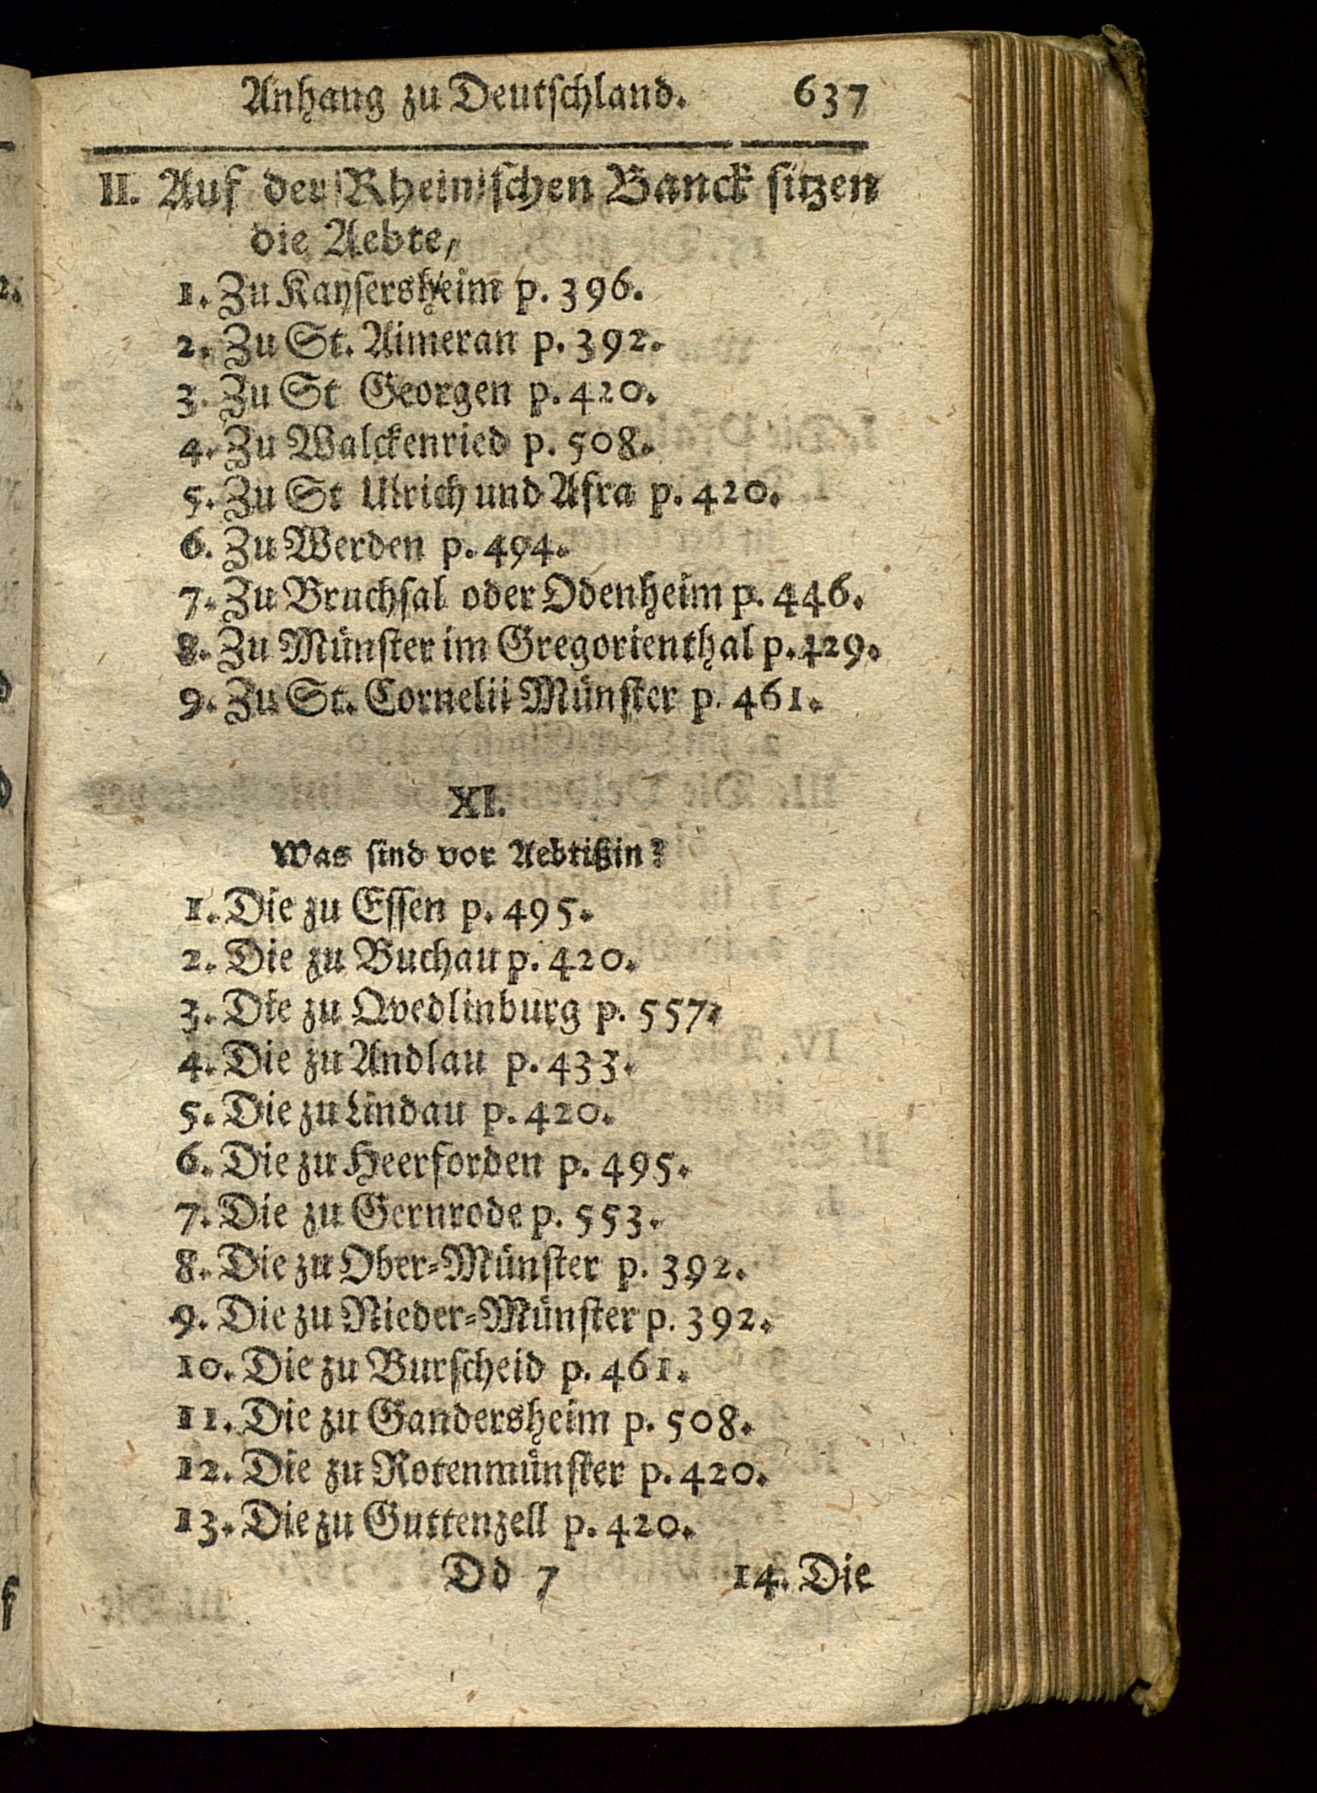 Anhang zu Deutschland. 637
II. Auf der Rheinischen Banck sitzen
die Aebte,
1. Zu Kaysersheim p. 396.
2. Zu St. Aimeran p. 392.
3. Zu St Georgen p. 420.
4. Zu Walckenried p. 508.
5. Zu St Ulrich und Afra p. 420.
6. Zu Werden p. 494.
7. Zu Bruchsal oder Odenheim p. 446.
8. Zu Münster im Gregorienthal p. 429.
9. Zu St. Cornelii Münster p. 461.
XI.
Was sind vor Aebtißin?
1. Die zu Essen p. 495.
2. Die zu Buchau p. 420.
3. Die zu Qvedlinburg p. 557.
4. Die zu Andlau p. 433.
5. Die zu Lindau p. 420.
6. Die zu Heerforden p. 495.
7. Die zu Gernrode p. 553.
8. Die zu Ober-Münster p. 392.
9. Die zu Nieder-Münster p. 392.
10. Die zu Burscheid p. 461.
11. Die zu Gandersheim p. 508.
12. Die zu Rotenmünster p. 420.
13. Die zu Guttenzell p. 420.
Dd 7 14. Die